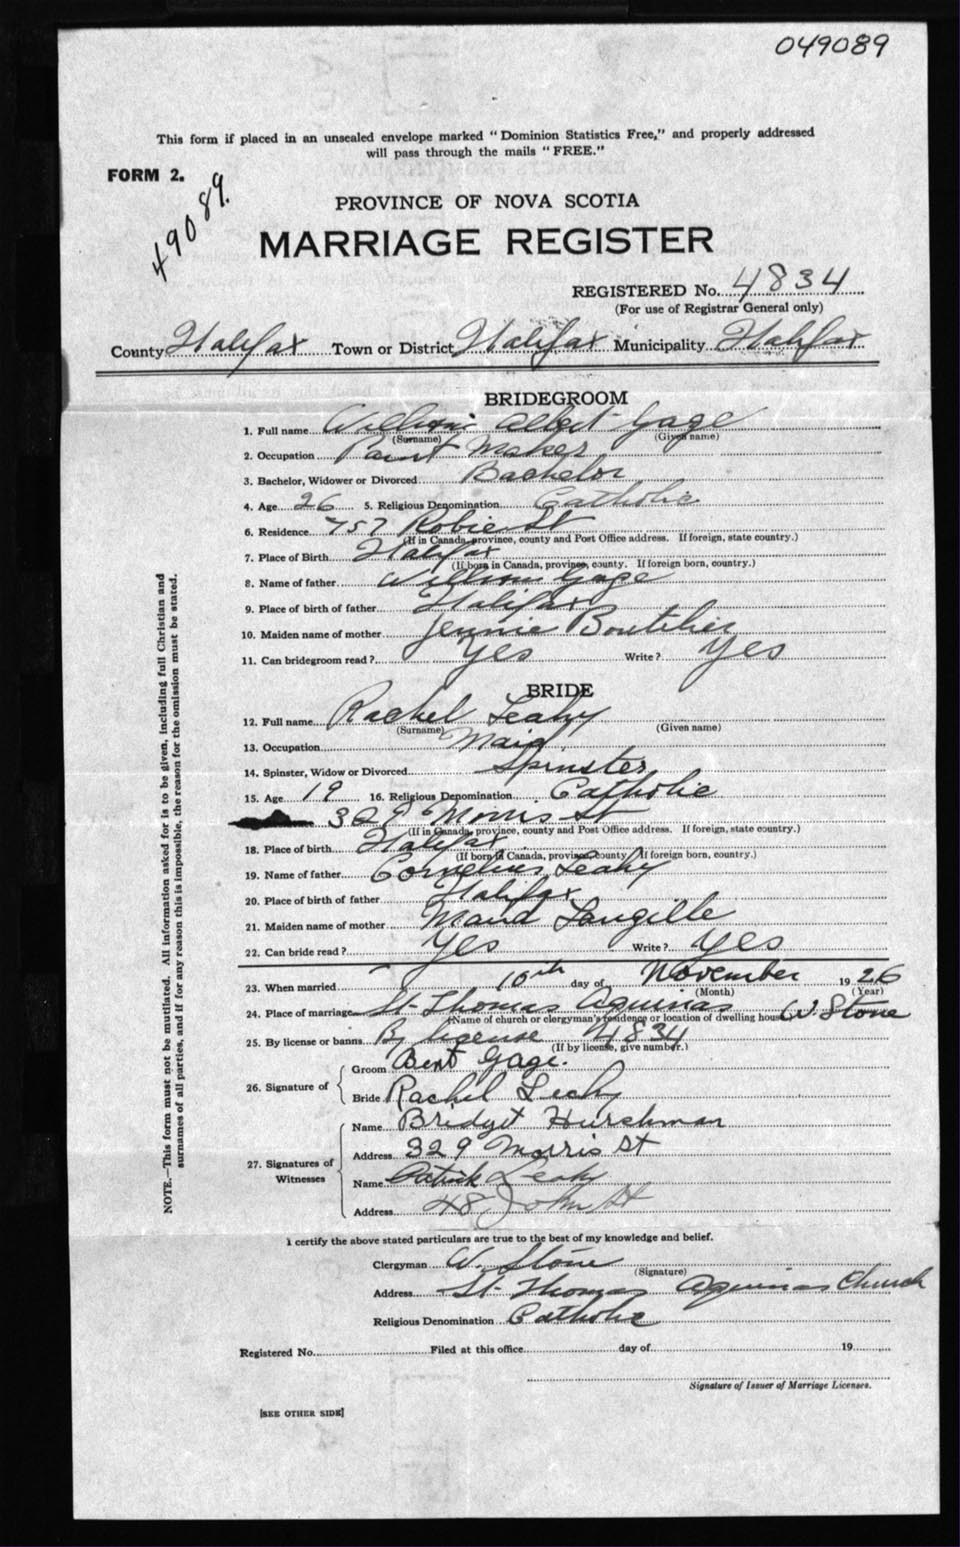 049089
This form if placed in an unsealed envelope marked " Dominion Statistics Free," and properly addressed
will pass through the mails " FREE."
FORM 2.
49089.
PROVINCE OF NOVA SCOTIA
MARRIAGE REGISTER
REGISTERED No. 4834
(For use of Registrar General only)
County Halifax Town or District Halifax Municipality Halifax
BRIDEGROOM
1. Full name William Albert Gage
(Surname) (Given name)
2. Occupation Paint Maker
3. Bachelor, Widower or Divorced Bachelor
4. Age 26 5. Religious Denomination Catholic
6. Residence 757 Robie St
(If in Canada, province, county and Post Office address. If foreign, state country.)
7. Place of Birth Halifax
(If born in Canada, province, county. If foreign born, country.)
8. Name of father William Gage
9. Place of birth of father Halifax
10. Maiden name of mother Jennie Boutilier
11. Can bridegroom read? Yes Write? Yes
BRIDE
12. Full name Rachel Leahy
(Surname) (Given name)
13. Occupation Maid
14. Spinster, Widow or Divorced Spinster
15. Age 19 16. Religious Denomination Catholic
329 Morris St
(If in Canada, province, county and Post Office address. If foreign, state country.)
18. Place of birth Halifax
(If born in Canada, province, county. If foreign born, country.)
19. Name of father Cornelius Leahy
20. Place of birth of father Halifax
21. Maiden name of mother Maud Langille
22. Can bride read? Yes Write? Yes
23. When married 10th day of November 1926
(Month) (Year)
24. Place of marriage St Thomas Aquinas W Stone
(Name of church or clergyman's residence or location of dwelling house)
25. By license or banns By license 4834
(If by license, give number.)
26. Signature of
Groom Bert Gage.
Bride Rachel Leahy
27. Signatures of Witnesses
Name Bridget Hurshman
Address 329 Morris St
Name Patrick Leahy
Address 48 John St
I certify the above stated particulars are true to the best of my knowledge and belief.
Clergyman W. Stone
(Signature)
Address St Thomas Aquinas Church
Religious Denomination Catholic
Registered No. Filed at this office day of 19
Signature of Issuer of Marriage Licenses.
[SEE OTHER SIDE]
NOTE.—This form must not be mutilated. All information asked for is to be given, including full Christian and
surnames of all parties, and if for any reason this is impossible, the reason for the omission must be stated.